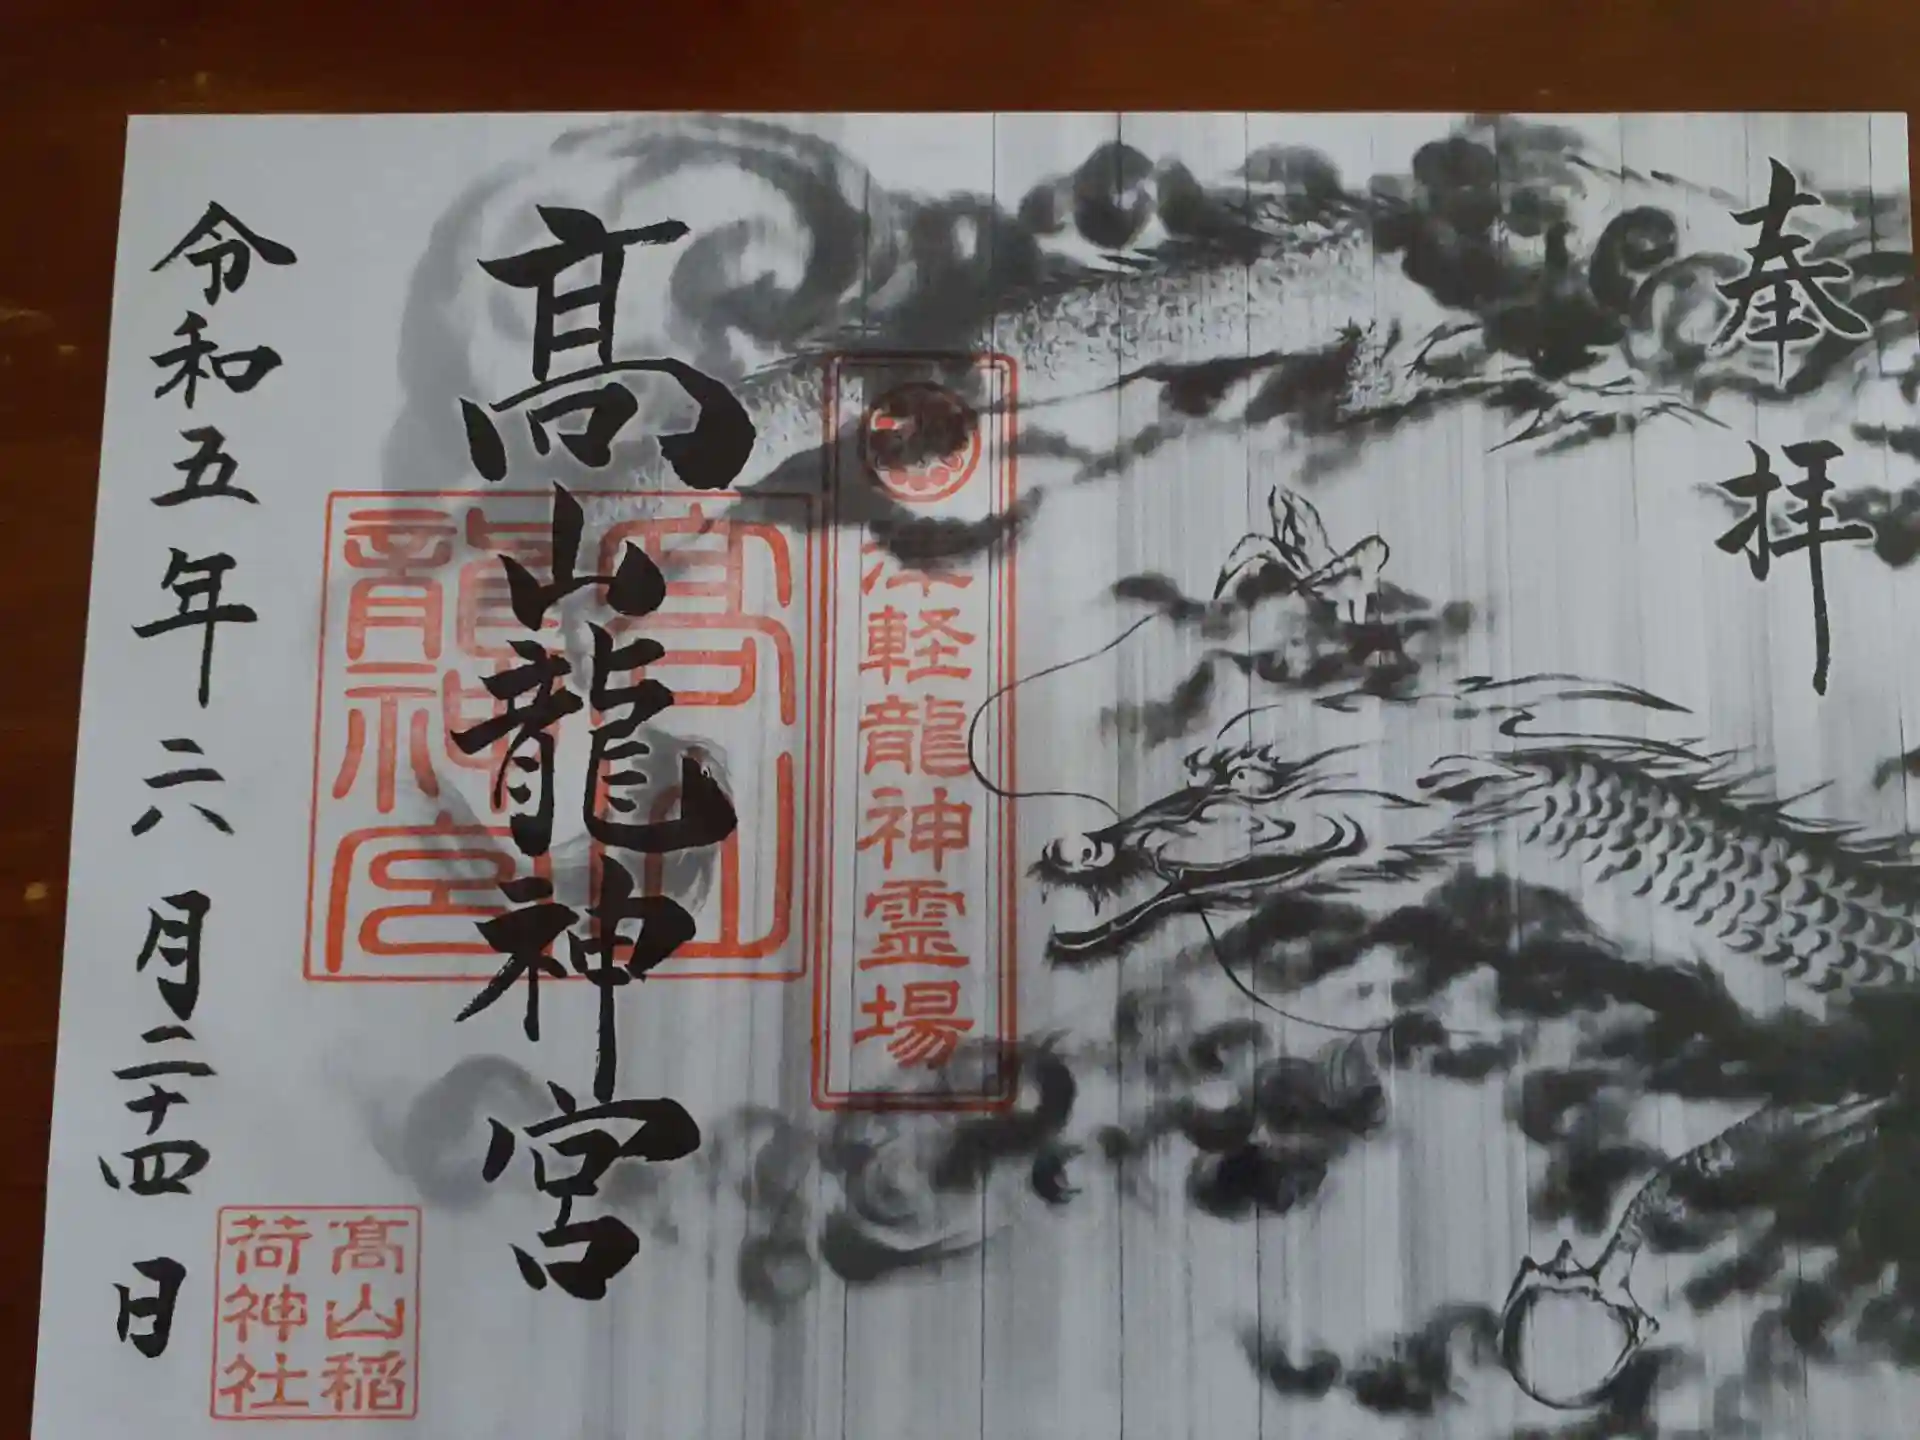 奉拝
津軽龍神霊場
髙山龍神宮
髙山
龍神宮
令和五年六月二十四日
髙山稲
荷神社